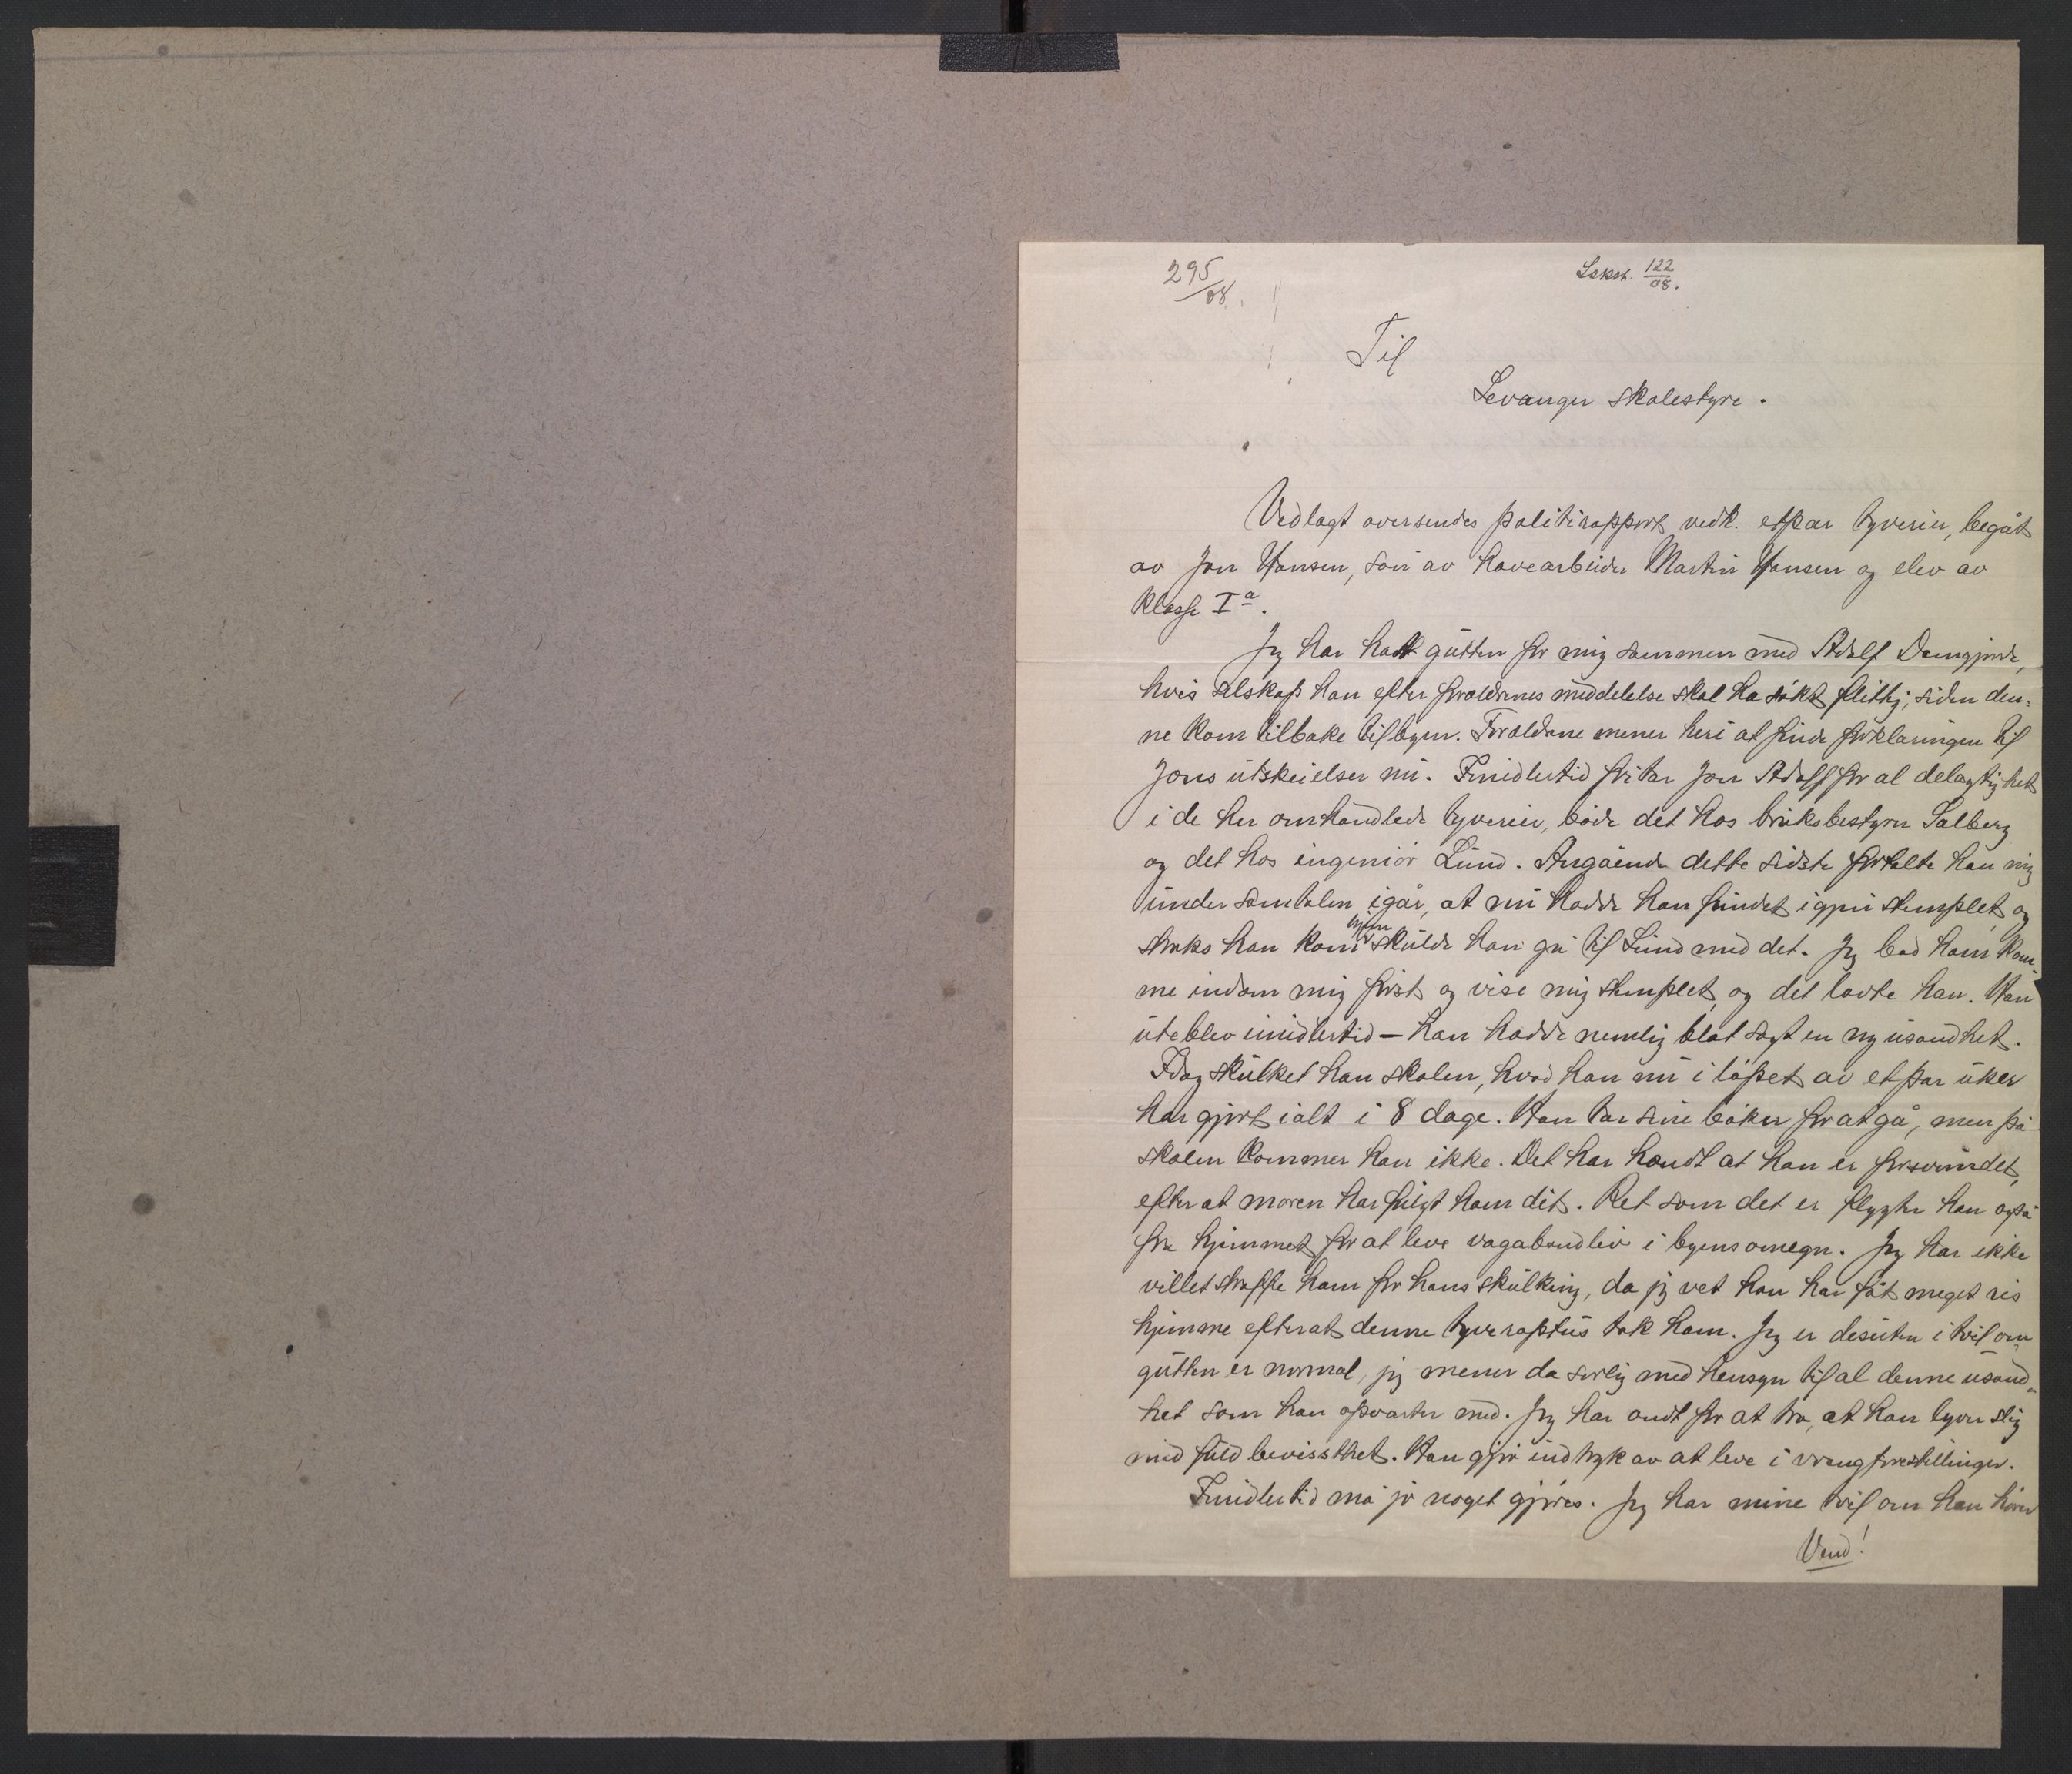 295/08.
Lskst. 122/08.
Til
Levanger skolestyre.
Vedlagt oversendes politirapport vedk. etpar tyverier, begåt
av Jon Hansen, søn av havearbeider Martin Hansen og elev av
klasse Iᵃ.
Jeg har hat gutten for mig sammen med Adolf Damgjerde,
hvis selskap han efter forældrenes meddelelse skal ha søkt flittig, siden den-
ne kom tilbake til byen. Forældrene mener heri at finde forklaringen til
Jons utskeielser nu. Imidlertid fritar Jon Adolf for al delagtighet
i de her omhandlede tyverier, både det hos bruksbestyrer Salberg
og det hos ingeniør Lund. Angående dette sidste fortalte han mig
under samtalen igår, at nu hadde han fundet igjen stemplet, og
straks han kom hjem skulde han gå til Lund med det. Jeg bad ham kom-
me indom mig først og vise mig stemplet, og det lovte han. Han
uteblev imidlertid — han hadde nemlig blot sagt en ny usandhet.
Idag skulket han skolen, hvad han nu i løpet av etpar uker
har gjort ialt i 8 dage. Han tar sine bøker for at gå, men på
skolen kommer han ikke. Det har hændt at han er forsvundet,
efter at moren har fulgt ham dit. Ret som det er flygter han også
fra hjemmet for at leve vagabondliv i byens omegn. Jeg har ikke
villet straffe ham for hans skulking, da jeg vet han har fåt meget ris
hjemme efterat denne tyveraptus tok ham. Jeg er desuten i tvil om
gutten er normal, jeg mener da særlig med hensyn til al denne usand-
het som han opvarter med. Jeg har ondt for at tro, at han lyver slig
med fuld bevissthet. Han gjør indtryk av at leve i vrangforestillinger.
Imidlertid må jo noget gjøres. Jeg har mine tvil om han hører
Vend!